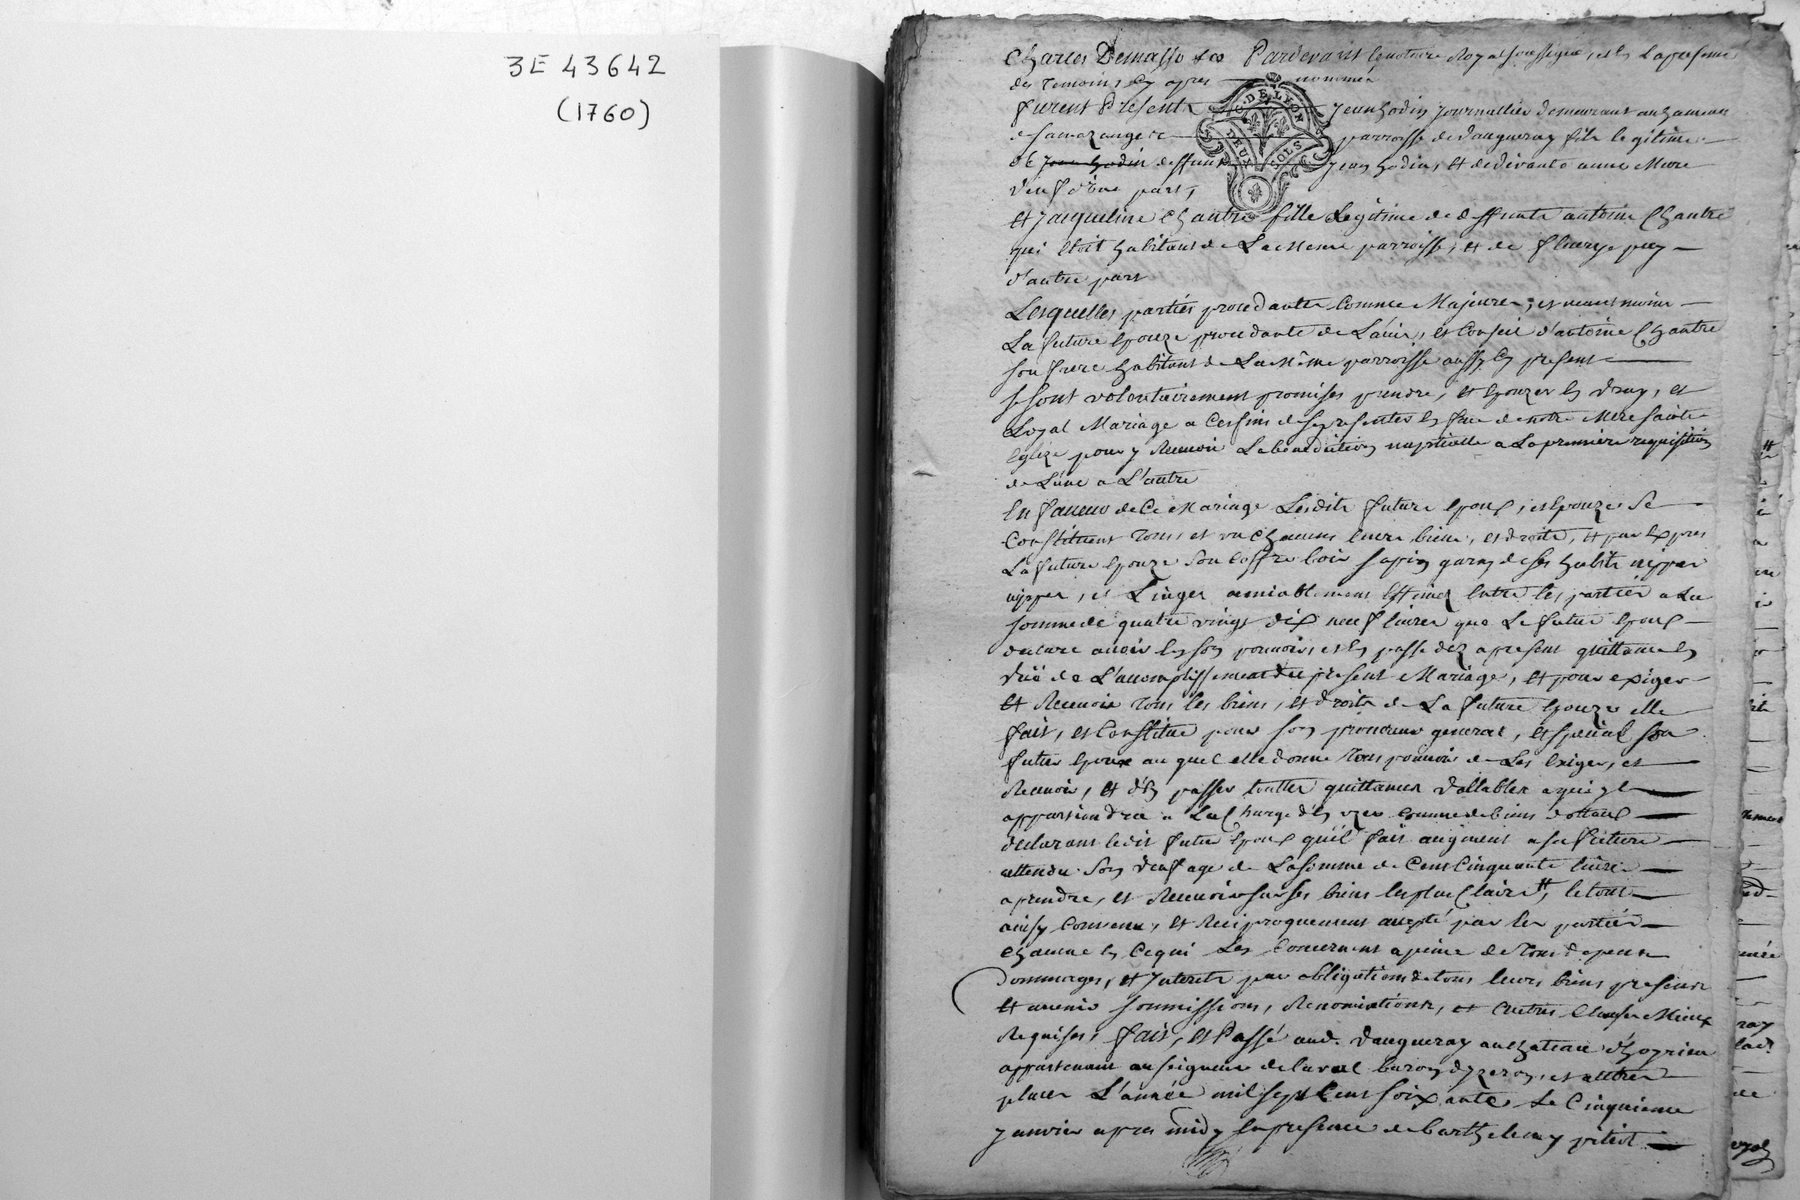 3E 43642
(1760)
Charles Demasso &co Pardevant le notaire Royal soussigné, et en la presence
des temoins cy apres nommés
G. DE LYON
DEUX SOLS
furent Presents Jean hodin Journallier demeurant au hameau
de parroisse de Vaugneray fils legitime
de Jean hodin deffunt Jean hodin, et de vivante anne Mure
veuf d'une part,
et Jacqueline Chantre fille Legitime de deffunte antoine Chantre
qui etoit habitant de La Meme parroisse, et de fleurye puy
d'autre part
Lesquelles partiés procedantes comme Majeures, et neantmoins
La future Epouze procedante de L'avis, et Conseil d'antoine Chantre
son frere habitant de La Même parroisse aussy cy present
se sont volontairement promises prendre, et Epouzer en vray, et
Loyal Mariage a cesfins de se presenter en face de notre Mere Sainte
Eglize pour y Recevoir La benediction nuptialle a La premiere requisition
de L'une a L'autre
En faveur de Ce Mariage Lesdits future Epoux, et Epouze Se
Constituent tous et un Chacuns leurs biens, et droits, et par Expres
La future Epouze Son Coffre bois sapin garny de ses habits nippes
nippes, et Linges amiablement Estimez Entre les partiés a La
somme de quatre vingt dix neuf livres que Le futur Epoux
declare avoir en son pouvoir, et en passe dez apresent quittance en
vüe de L'accomplissement du present Mariage, et pour exiger
et Recevoir tous les biens, et droits de La future Epouze elle
fait, et Constitue pour son procureur general, et special son
futur Epoux au quel elle donne tous pouvoir de Les Exiger, et
Recevoir, et d'En passer touttes quittances vallables a qui Il
appartiendra a La Charge d'En uzer comme de biens dottaux
declarant ledit futur Epoux qu'il fait augment a sa future
attendu Son veufvage de La somme de Cent Cinquante livres
a prendre, et Recevoir sur ses biens les plus Clairs, le tout
ainsy Convenu, et Reciproquement accepté par les partiés
Chacune en Cequi Les Concernent a peine de tous depens
dommages, et Interets par obligations de tous leurs biens presents
et avenir soumissions, Renonciations, et autres Clauses Mieux
Requises, fait, et Passé aud. Vaugneray au chateau d'hoyrieu
appartenant au seigneur de laval baron d'yzeron, et autres
places L'année mil sept Cent soixante, Le Cinquieme
Janvier apres midy En presence de barthelemy pitiot